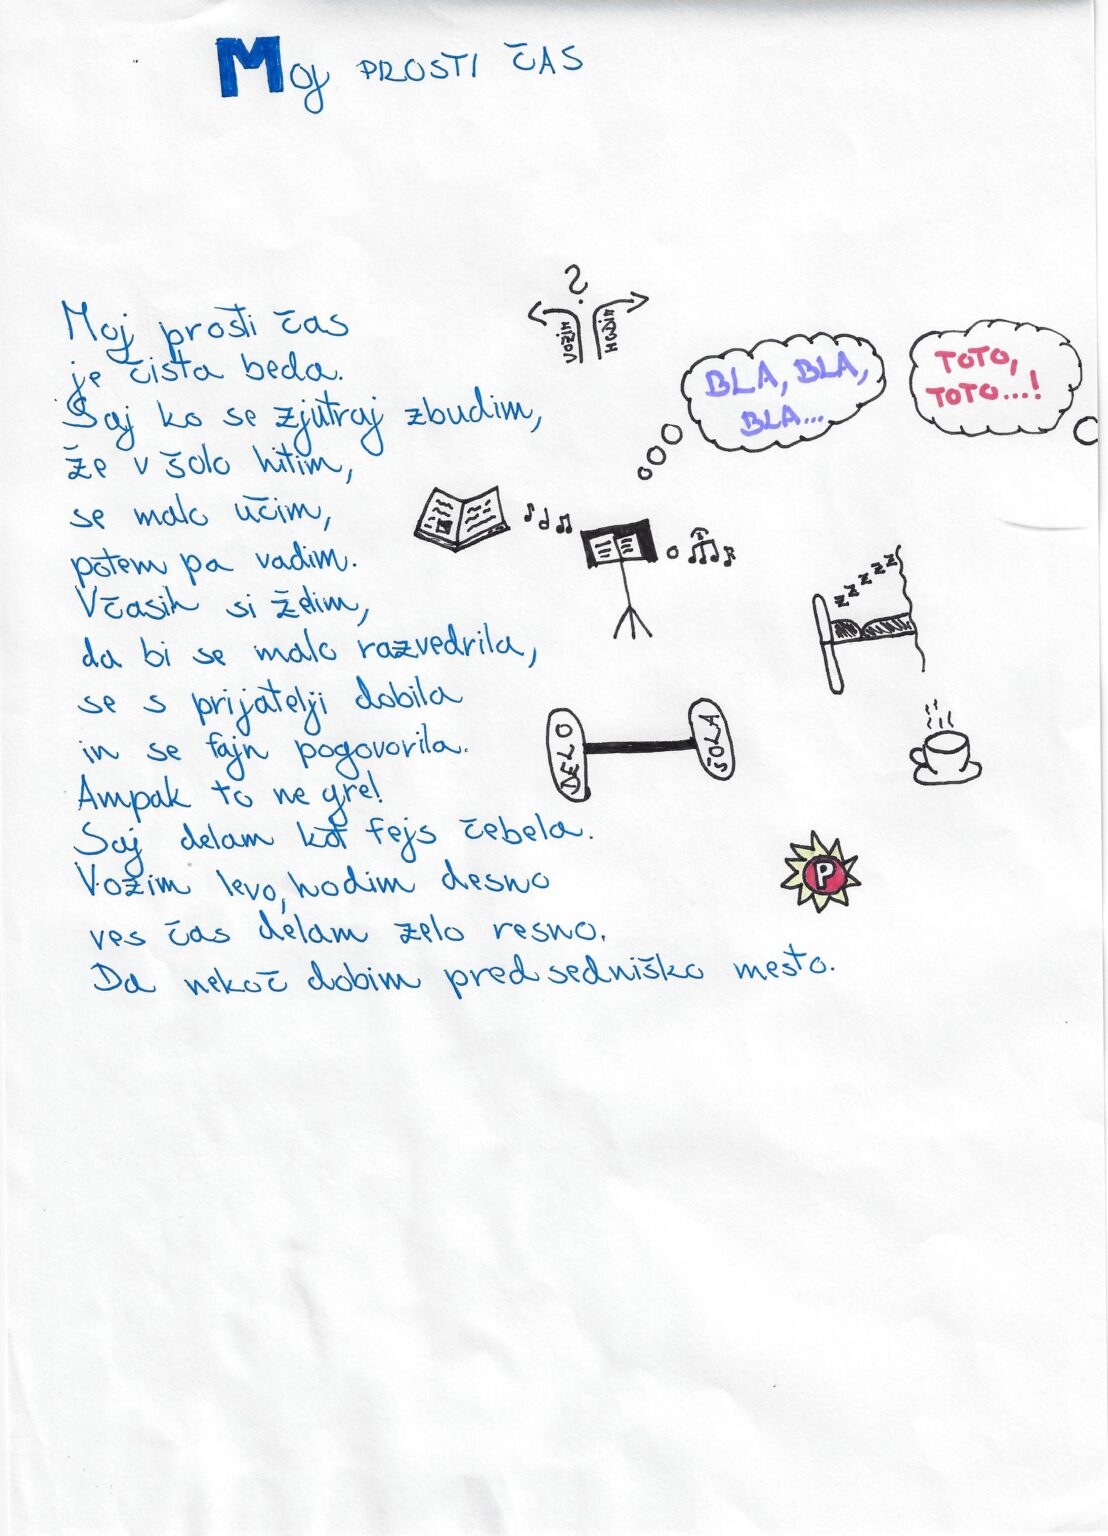 Moj PROSTI ČAS
Moj prosti čas
je čista beda.
Saj ko se zjutraj zbudim,
že v šolo hitim,
se malo učim,
potem pa vadim.
Včasih si ždim,
da bi se malo razvedrila,
se s prijatelji dobila
in se fajn pogovorila.
Ampak to ne gre!
Saj delam kot fejs čebela.
Vozim levo, hodim desno
ves čas delam zelo resno.
Da nekoč dobim predsedniško mesto.
?
VOZIM
HODIM
BLA, BLA,
BLA...
TOTO,
TOTO...!
z z z z z
DELO
ŠOLA
P